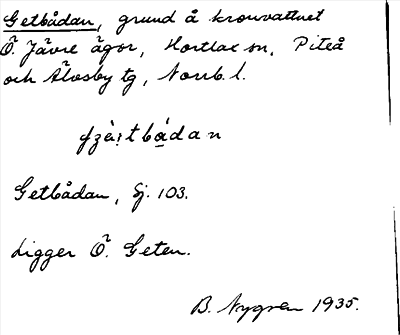 Getbådan, grund å kronvattnet
Ö. Jävre ägor, Hortlax sn, Piteå
och Älvsby tg, Norrb. l.
Getbådan, Sj. 103.
Ligger Ö. Geten.
B. Nygren 1935.